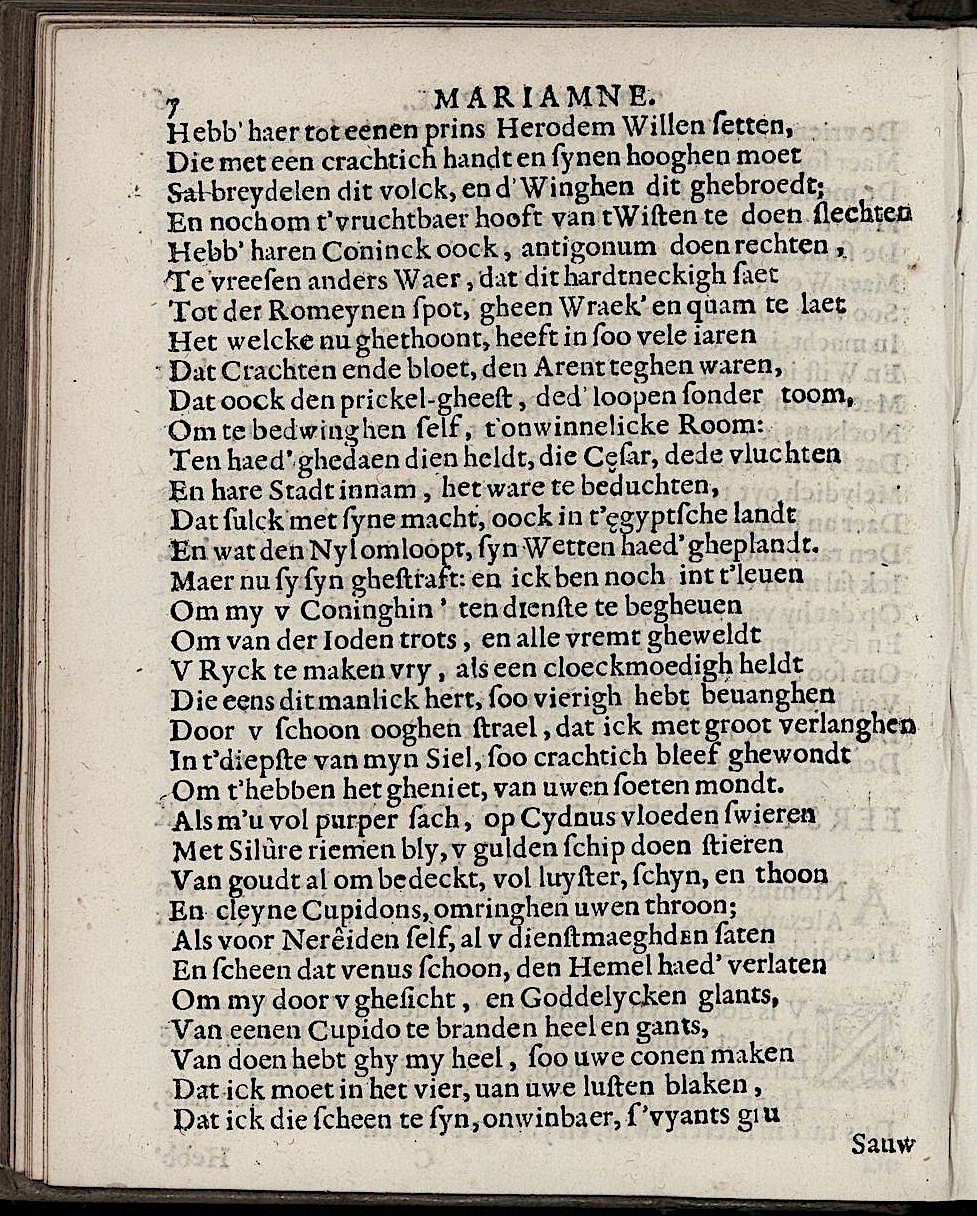 7 MARIAMNE.
Hebb' haer tot eenen prins Herodem Willen ſetten,
Die met een crachtich handt en ſynen hooghen moet
Sal breydelen dit volck, en d'Winghen dit ghebroedt;
En noch om t'vruchtbaer hooft van tWiſten te doen ſlechten
Hebb' haren Coninck oock, antigonum doen rechten,
Te vreeſen anders Waer, dat dit hardtneckigh ſaet
Tot der Romeynen ſpot, gheen Wraek' en quam te laet
Het welcke nu ghethoont, heeft in ſoo vele iaren
Dat Crachten ende bloet, den Arent teghen waren,
Dat oock den prickel-gheeſt, ded' loopen ſonder toom,
Om te bedwinghen ſelf, t'onwinnelicke Room:
Ten haed' ghedaen dien heldt, die Cęſar, dede vluchten
En hare Stadt innam, het ware te beduchten,
Dat ſulck met ſyne macht, oock in t'ęgyptſche landt
En wat den Nyl omloopt, ſyn Wetten haed' gheplandt.
Maer nu ſy ſyn gheſtraft: en ick ben noch int t'leuen
Om my v Coninghin' ten dienſte te begheuen
Om van der Ioden trots, en alle vremt gheweldt
V Ryck te maken vry, als een cloeckmoedigh heldt
Die eens dit manlick hert, ſoo vierigh hebt beuanghen
Door v ſchoon ooghen ſtrael, dat ick met groot verlanghen
In t'diepſte van myn Siel, ſoo crachtich bleef ghewondt
Om t'hebben het gheniet, van uwen ſoeten mondt.
Als m'u vol purper ſach, op Cydnus vloeden ſwieren
Met Silûre riemen bly, v gulden ſchip doen ſtieren
Van goudt al om bedeckt, vol luyſter, ſchyn, en thoon
En cleyne Cupidons, omringhen uwen throon;
Als voor Nerêiden ſelf, al v dienſtmaeghdEn ſaten
En ſcheen dat venus ſchoon, den Hemel haed' verlaten
Om my door v gheſicht, en Goddelycken glants,
Van eenen Cupido te branden heel en gants,
Van doen hebt ghy my heel, ſoo uwe conen maken
Dat ick moet in het vier, uan uwe luſten blaken,
Dat ick die ſcheen te ſyn, onwinbaer, ſ'vyants
Sauw